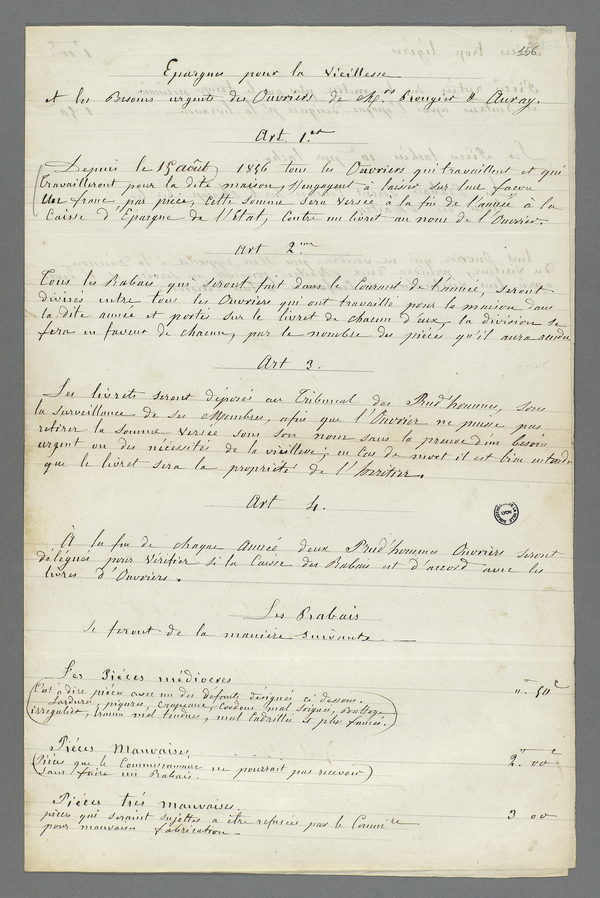 156
Epargnes pour la Vieillesse
et les Besoins urgents des Ouvriers de Mrs Brougier & Auray.
Art 1.er
Depuis le 15 août 1856 tous les Ouvriers qui travaillent et qui
travailleront pour la dite maison, s'engagent à laisser sur leur façon
Un franc par pièce, cette somme sera versée à la fin de l'année à la
Caisse d'Epargne de l'Etat, contre un livret au nom de l'Ouvrier.
Art 2.me
Tous les Rabais qui seront fait dans le Courant de l'année, seront
divisés entre tous les Ouvriers qui ont travaillé pour la maison dans
la dite année et porté sur le livret de chacun d'eux, la division se
fera en faveur de chacun, par le nombre des pièces qu'il aura rendu
Art 3.
Les livrets seront déposés au Tribunal des Prud'hommes, sous
la surveillance de ses Membres, afin que l'Ouvrier ne puisse pas
retirer la somme versée sous son nom sans la preuve d'un besoin
urgent ou des nécessités de la vieillesse; en cas de mort il est bien entendu
que le livret sera la propriété de l'héritier.
Art 4.
À la fin de chaque Année deux Prud'hommes Ouvriers seront
délégués pour Vérifier si la Caisse des Rabais est d'accord avec les
livres d'Ouvriers.
Les Rabais
se feront de la manière suivante
Les Pièces médiocres " 50 c
(C'est à dire pièces avec un des défauts désignés ci dessous.
Lardures, piqures, Crapeaux, Cordons mal soignés,
irrégulier, trame mal tendues, mal Cadrillés et plis faussés.)
Pièces Mauvaises 2 " 00 c
(Pièces que le Commissionnaire ne pourrait pas recevoir
sans faire un Rabais.)
Pièces très mauvaises. 3 00
pièces qui seraient sujettes a être refusées par le
pour mauvaise fabrication
LYON